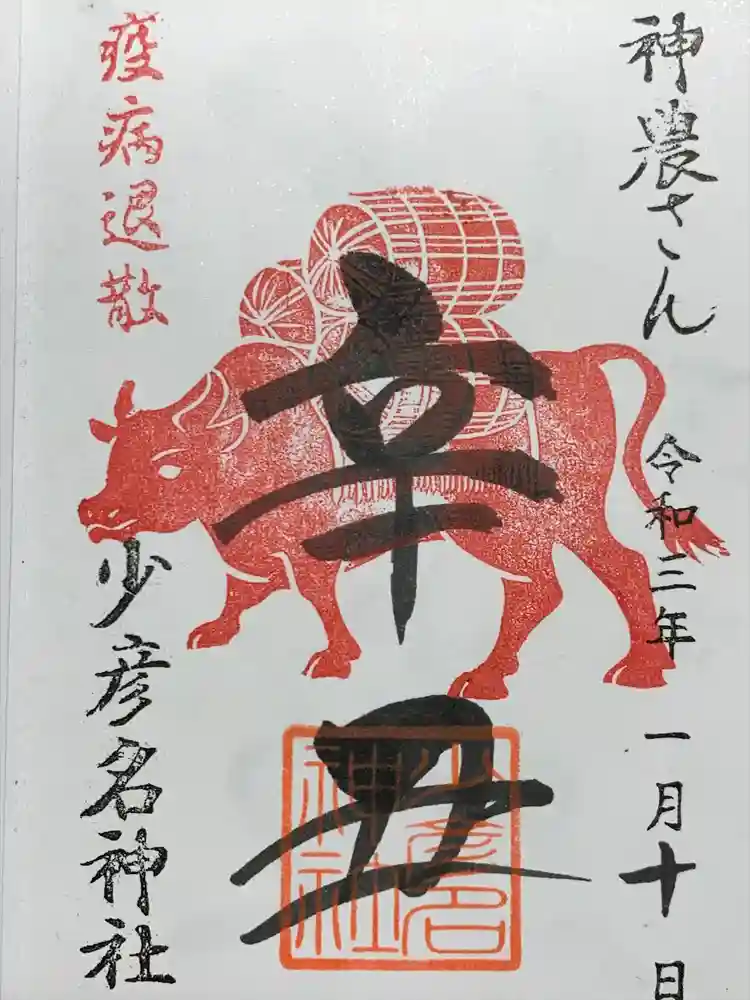 神農さん
令和三年
一月十日
辛丑
少彦名
神社
疫病退散
少彦名神社